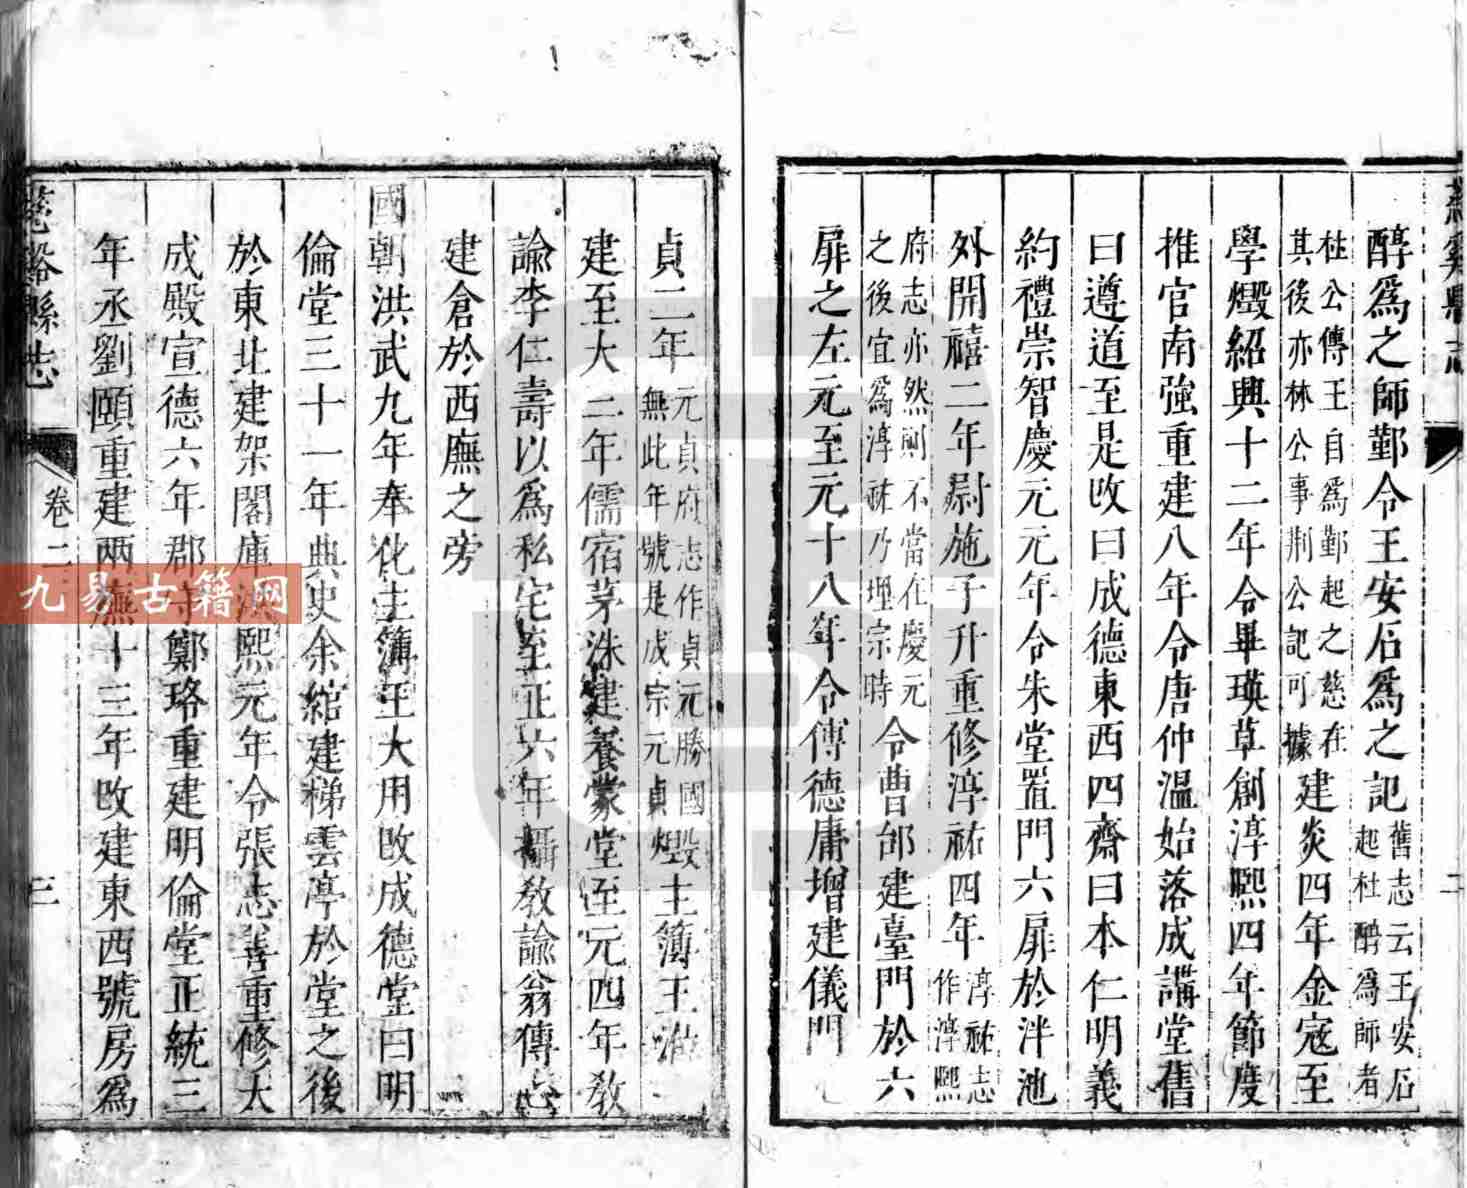 慈谿縣志
二
醇爲之師鄞令王安石爲之記舊志云王安石起杜醇爲師者
杜公傳王自爲鄞起之慈在其後亦林公事荆公記可據建炎四年金寇至
學燬紹興十二年令畢瑛草創淳熙四年節度
推官南強重建八年令唐仲溫始落成講堂舊
曰遵道至是改曰成德東西四齋曰本仁明義
約禮崇智慶元元年令朱堂置門六扉於泮池
外開禧二年尉施子升重修淳祐四年淳祐志作淳熙
府志亦然則不當在慶元之後宜爲淳祐乃理宗時令曹郃建臺門於六
扉之左元至元十八年令傅德庸增建儀門
貞二年元貞府志作貞元勝國無此年號是成宗元貞燬主簿王
建至大二年儒宿茅洙建養蒙堂至元四年敎
諭李仁壽以爲私宅至正六年攝敎諭翁傳心
建倉於西廡之旁
國朝洪武九年奉化主簿王大用改成德堂曰明
倫堂三十一年典史余綰建梯雲亭於堂之後
於東北建架閣庫洪熙元年令張志善重修大
成殿宣德六年郡守鄭珞重建明倫堂正統三
年丞劉頤重建兩廡十三年改建東西號房爲
慈谿縣志
卷二
三
九易古籍网